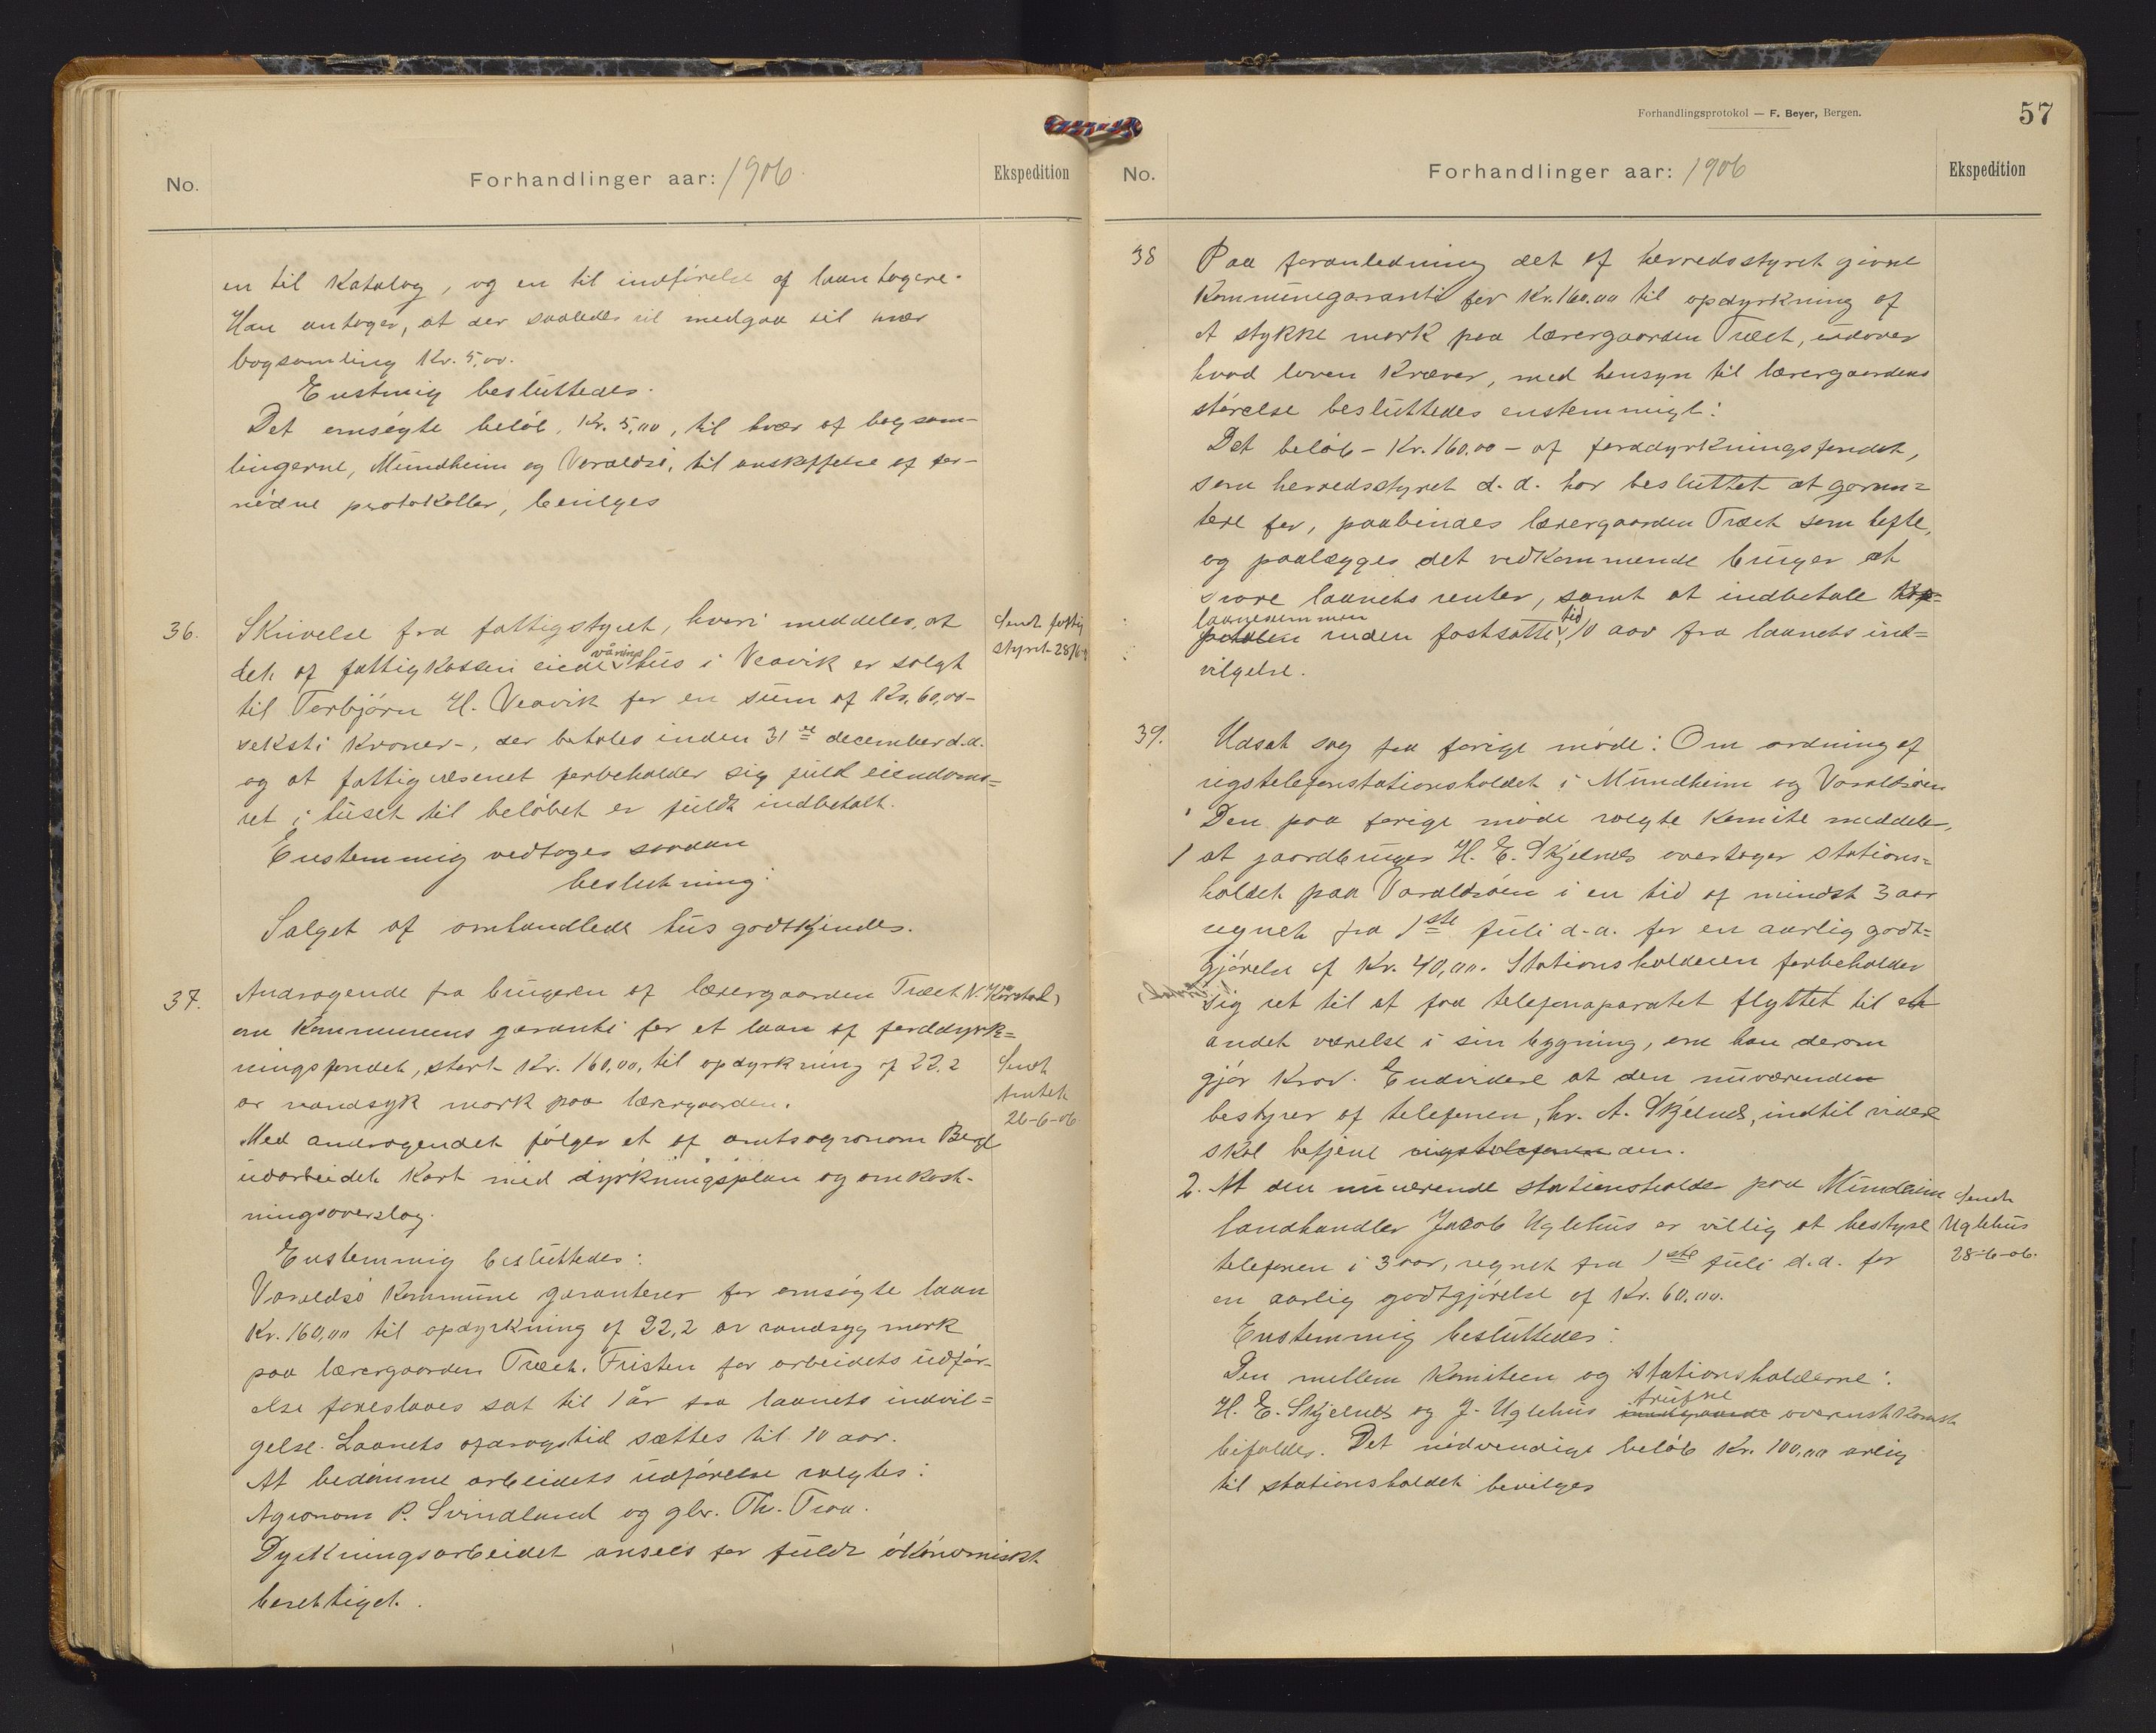 No.
Forhandlinger aar: 1906.
Ekspedition
en til Katalog, og en til indførelse af laantagere.
Han antager, at der saaledes vil medgaa til hver
bogsamling Kr. 5,00.
Enstmig besluttedes.
Det omsøgte beløb, Kr. 5,00, til hver af bogsam-
lingerne, Mundheim og Varaldsø, til anskaffelse af for-
nødne protokoller, bevilges
36.
Skrivelse fra fattigstyret, hvori meddeles, at
det af fattigkassen eiede vånings hus i Veavik er solgt
til Torbjørn H. Veavik for en sum af Kr. 60,00-
seksti kroner-, der betales inden 31te december d.a.
og at fattigvæsenet forbeholder sig fuld eiendoms=
ret i huset til beløbet er fuldt indbetalt.
Enstemmig vedtoges saadan
beslutning:
Salget af omhandlede hus godtkjendes.
Sendt fattig
styret 28/6-
37.
Andragende fra brugeren af lærergaarden Træet N. Hørstad,
om Kommunens garanti for et laan af jorddyrk=
ningsfondet, stort Kr. 160,00, til opdyrkning af 22,2
ar vandsyk mark paa lærergaarden.
Med andragendet følger et af amtsagronom Berge
udarbeidet Kart med dyrkningsplan og omkost-
ningsoverslag.
Sendt
Amtet
26-6-06
Enstemmig besluttedes:
Varaldsø Kommune garanterer for omsøgte laan
Kr. 160,00 til opdyrkning af 22,2 ar vandsyg mark
paa lærergaarden Træet. Fristen for arbeidets udfør-
else foreslaaes sat til 1 år fra laanets indvil=
gelse. Laanets afdragstid sættes til 10 aar.
At bedømme arbeidets udførelse valgtes:
Agronom P. Svindland og gbr. Th. Traa.
Dyrkningsarbeidet ansees for fuldt økonomiskt
berettiget.
Forhandlingsprotokol — F. Beyer, Bergen.
57
No.
Forhandlinger aar: 1906
Ekspedition
38
Paa foranledning det af herredsstyret givne
Kommunegaranti for Kr. 160.00 til opdyrkning af
et stykke mark paa lærergaarden Træet, udover
hvad loven kræver, med hensyn til lærergaardens
størelse besluttedes enstemmigt:
Det beløb - Kr. 160.00 - af jorddyrkningsfondet,
som herredsstyret d. d. har besluttet at garan=
tere for, paabindes lærergaarden Træet som hefte,
og paalægges det vedkommende bruger at
svare laanets renter, samt at indbetale kap=
pitalen laanesummen inden fastsatte tid, 10 aar fra laanets ind=
vilgelse.
39.
Udsat sag fra forige møde: Om ordning af
rigstelefonstationsholdet i Mundheim og Varaldsøen
Den paa forige møde valgte komite meddeler,
1 at jaardbruger H. E. Skjelnes overtager stations=
holdet paa Varaldsøen i en tid af mindst 3 aar
regnet fra 1ste juli d.a. for en aarlig godt=
gjørelse af Kr. 40,00. Stationsholderen forbeholder
sig ret til at faa telefonaparatet flyttet til et
andet værelse i sin bygning, om han derom
gjør Krav. Endvidere at den nuværende
bestyrer af telefonen, hr. A. Skjelnes, indtil videre
skal betjene rigstelefonen den.
2. At den nuværende stationsholder paa Mundheim
landhandler Jacob Uglehus er villig at bestyre
telefonen i 3 aar, regnet fra 1ste juli d.a. for
en aarlig godtgjørelse af Kr. 60.00.
Sendt
Uglehus
28-6-06.
Enstemmig besluttedes:
Den mellem Komiteen og stationsholderne:
H. E. Skjelnes og J. Uglehus trufne overenskomst
bifaldes. Det nødvendige beløb Kr. 100,00 årlig
til stationsholdet bevilges